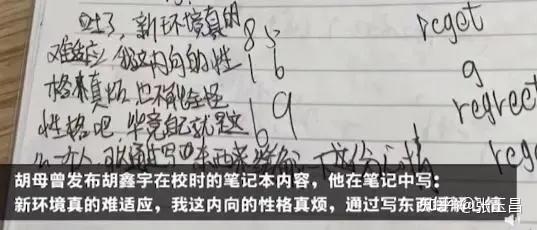 了，新环境真的
难适应，我这内向的性
格来真烦，也不能全怪
性格吧，毕竟自己就是这
85
16
69
reget
g
regreet
胡母曾发布胡鑫宇在校时的笔记本内容，他在笔记中写：
新环境真的难适应，我这内向的性格真烦，通过写东西缓解心情
知乎 @张玉昌